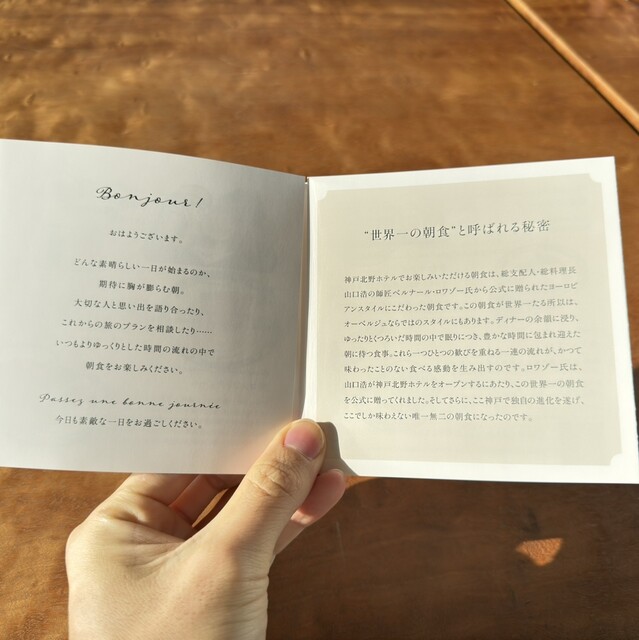 Bonjour!
おはようございます。
どんな素晴らしい一日が始まるのか、
期待に胸が膨らむ朝。
大切な人と思い出を語り合ったり、
これからの旅のプランを相談したり……
いつもよりゆっくりとした時間の流れの中で
朝食をお楽しみください。
Passez une bonne journée
今日も素敵な一日をお過ごしください。
“世界一の朝食”と呼ばれる秘密
神戸北野ホテルでお楽しみいただける朝食は、総支配人・総料理長
山口浩の師匠ベルナール・ロワゾー氏から公式に贈られたヨーロピ
アンスタイルにこだわった朝食です。この朝食が世界一たる所以は、
オーベルジュならではのスタイルにもあります。ディナーの余韻に浸り、
ゆったりとくつろいだ時間の中で眠りにつき、豊かな時間に包まれ迎えた
朝に待つ食事。これら一つひとつの歓びを重ねる一連の流れが、かつて
味わったことのない食べる感動を生み出すのです。ロワゾー氏は、
山口浩が神戸北野ホテルをオープンするにあたり、この世界一の朝食
を公式に贈ってくれました。そしてさらに、ここ神戸で独自の進化を遂げ、
ここでしか味わえない唯一無二の朝食になったのです。